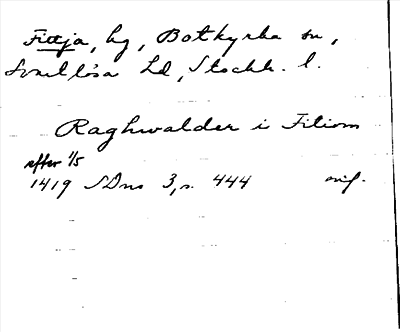 Fittja, by, Botkyrka sn,
Svartlösa hd, Stockh. l.
Raghwalder i Fitiom
efter 1/5
1419 SDns 3, s. 444 orig.